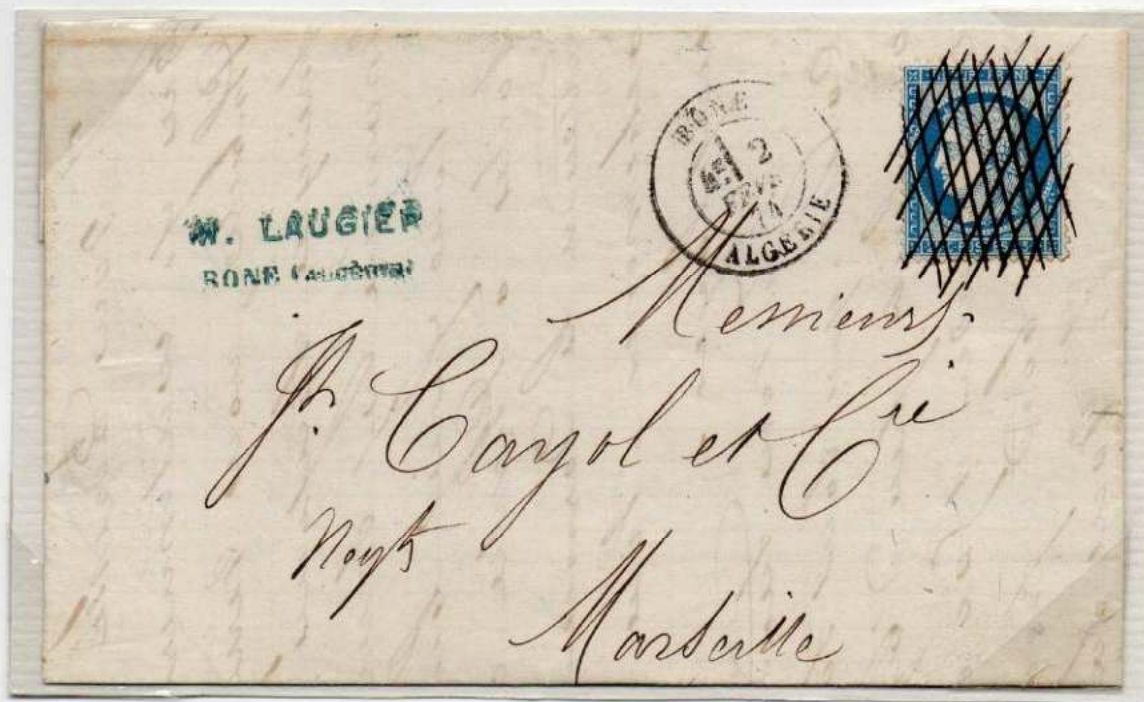 W. LAUGIER
BONE
BÔNE
2
FEVR
74
ALGERIE
Messieurs
Jh. Cayol et Cie
Negts
Marseille